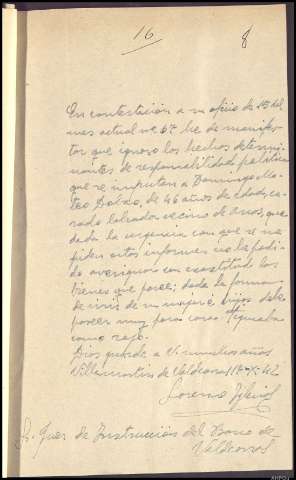 16
8
En contestación a su oficio de 13 del
mes actual nº 67 he de manifes-
tar que ignoro los hechos determi-
nantes de responsabilidad politica
que se imputan a Domingo
de 46 años de edad, ca-
sado labrador vecino de que
dada la urgencia con que se me
piden estos informes no he podi-
do averiguar con exactitud los
bienes que posee; dada la forma
de vivir de su mujer e hijos debe
poseer muy poca cosa
como rojo.
Dios guarde a V. muchos años
Villamartin de Valdeorras
Sr. Juez de Instrucción del Barco de
Valdeorras